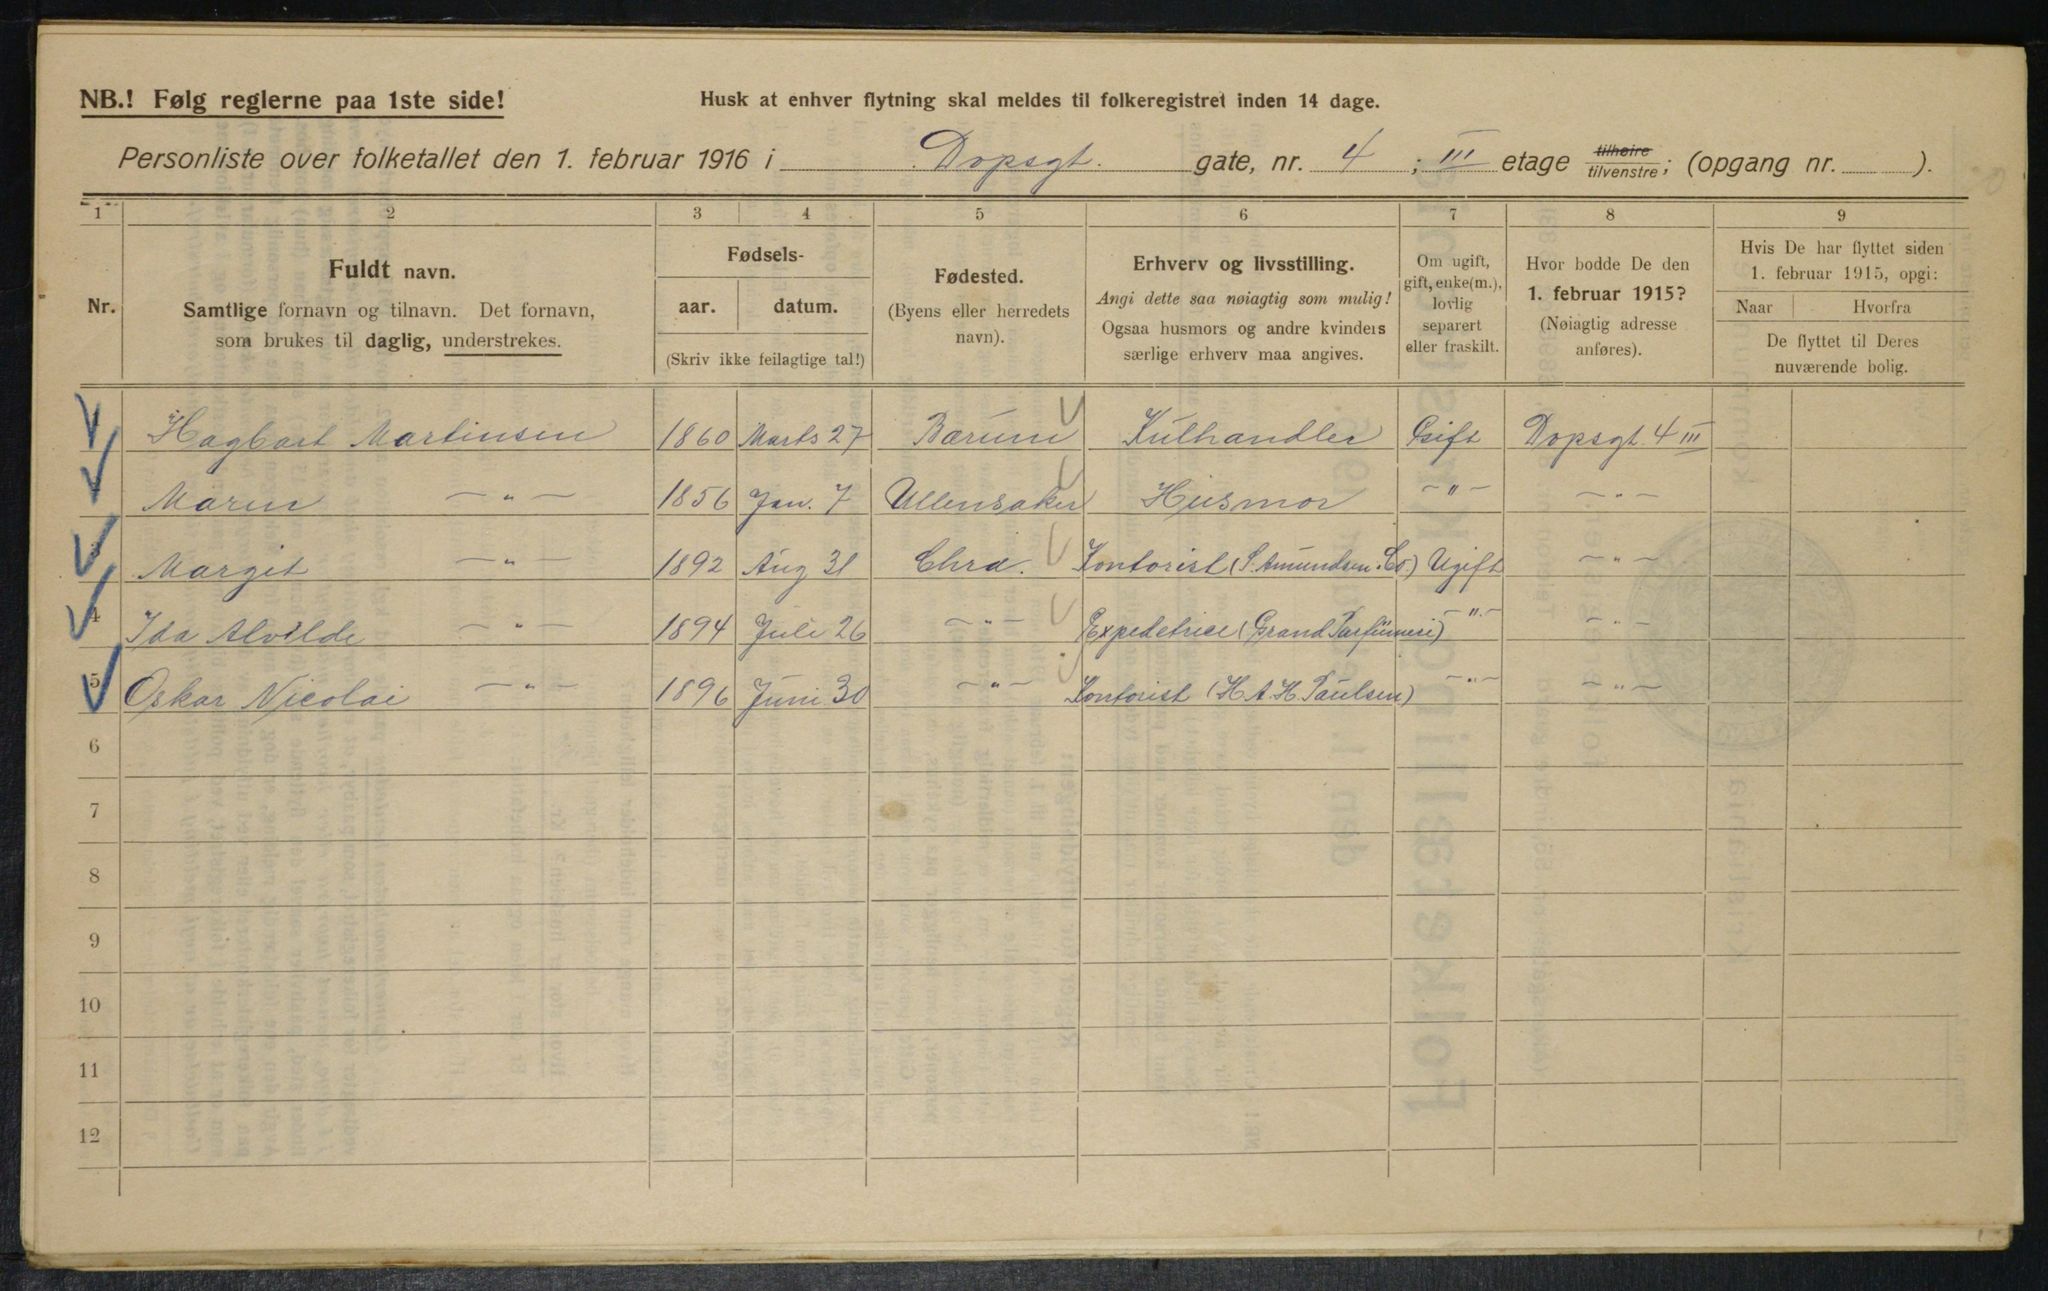 NB.! Følg reglerne paa 1ste side!
Husk at enhver flytning skal meldes til folkeregistret inden 14 dage.
Personliste over folketallet den 1. februar 1916 i Dopsgt. gate, nr. 4; III etage tilhøire/tilvenstre; (opgang nr. ).
1 2 3 4 5 6 7 8 9
Nr.
Fuldt navn.
Samtlige fornavn og tilnavn. Det fornavn,
som brukes til daglig, understrekes.
Fødsels-
aar. datum.
(Skriv ikke feilagtige tal!)
Fødested.
(Byens eller herredets
navn).
Erhverv og livsstilling.
Angi dette saa nøiagtig som mulig!
Ogsaa husmors og andre kvinders
særlige erhverv maa angives.
Om ugift,
gift, enke(m.),
lovlig
separert
eller fraskilt.
Hvor bodde De den
1. februar 1915?
(Nøiagtig adresse
anføres).
Hvis De har flyttet siden
1. februar 1915, opgi:
Naar Hvorfra
De flyttet til Deres
nuværende bolig.
Hagbart Martinsen 1860 Marts 27 Bærum Kulhandler Gift Dopsgt. 4 III
Maren — " — 1856 Jan. 7 Ullensaker Husmor — " — — " —
3 Margit — " — 1892 Aug 31 Chra. Kontorist (S. Amundsen & Co) Ugift — " —
4 Ida Alvilde — " — 1894 Juli 26 — " — Expeditrice (Grand Parfümeri) — " — — " —
5 Oskar Nicolai — " — 1896 Juni 30 — " — Kontorist (H. A. H. Paulsen) — " — — " —
6
7
8
9
10
11
12